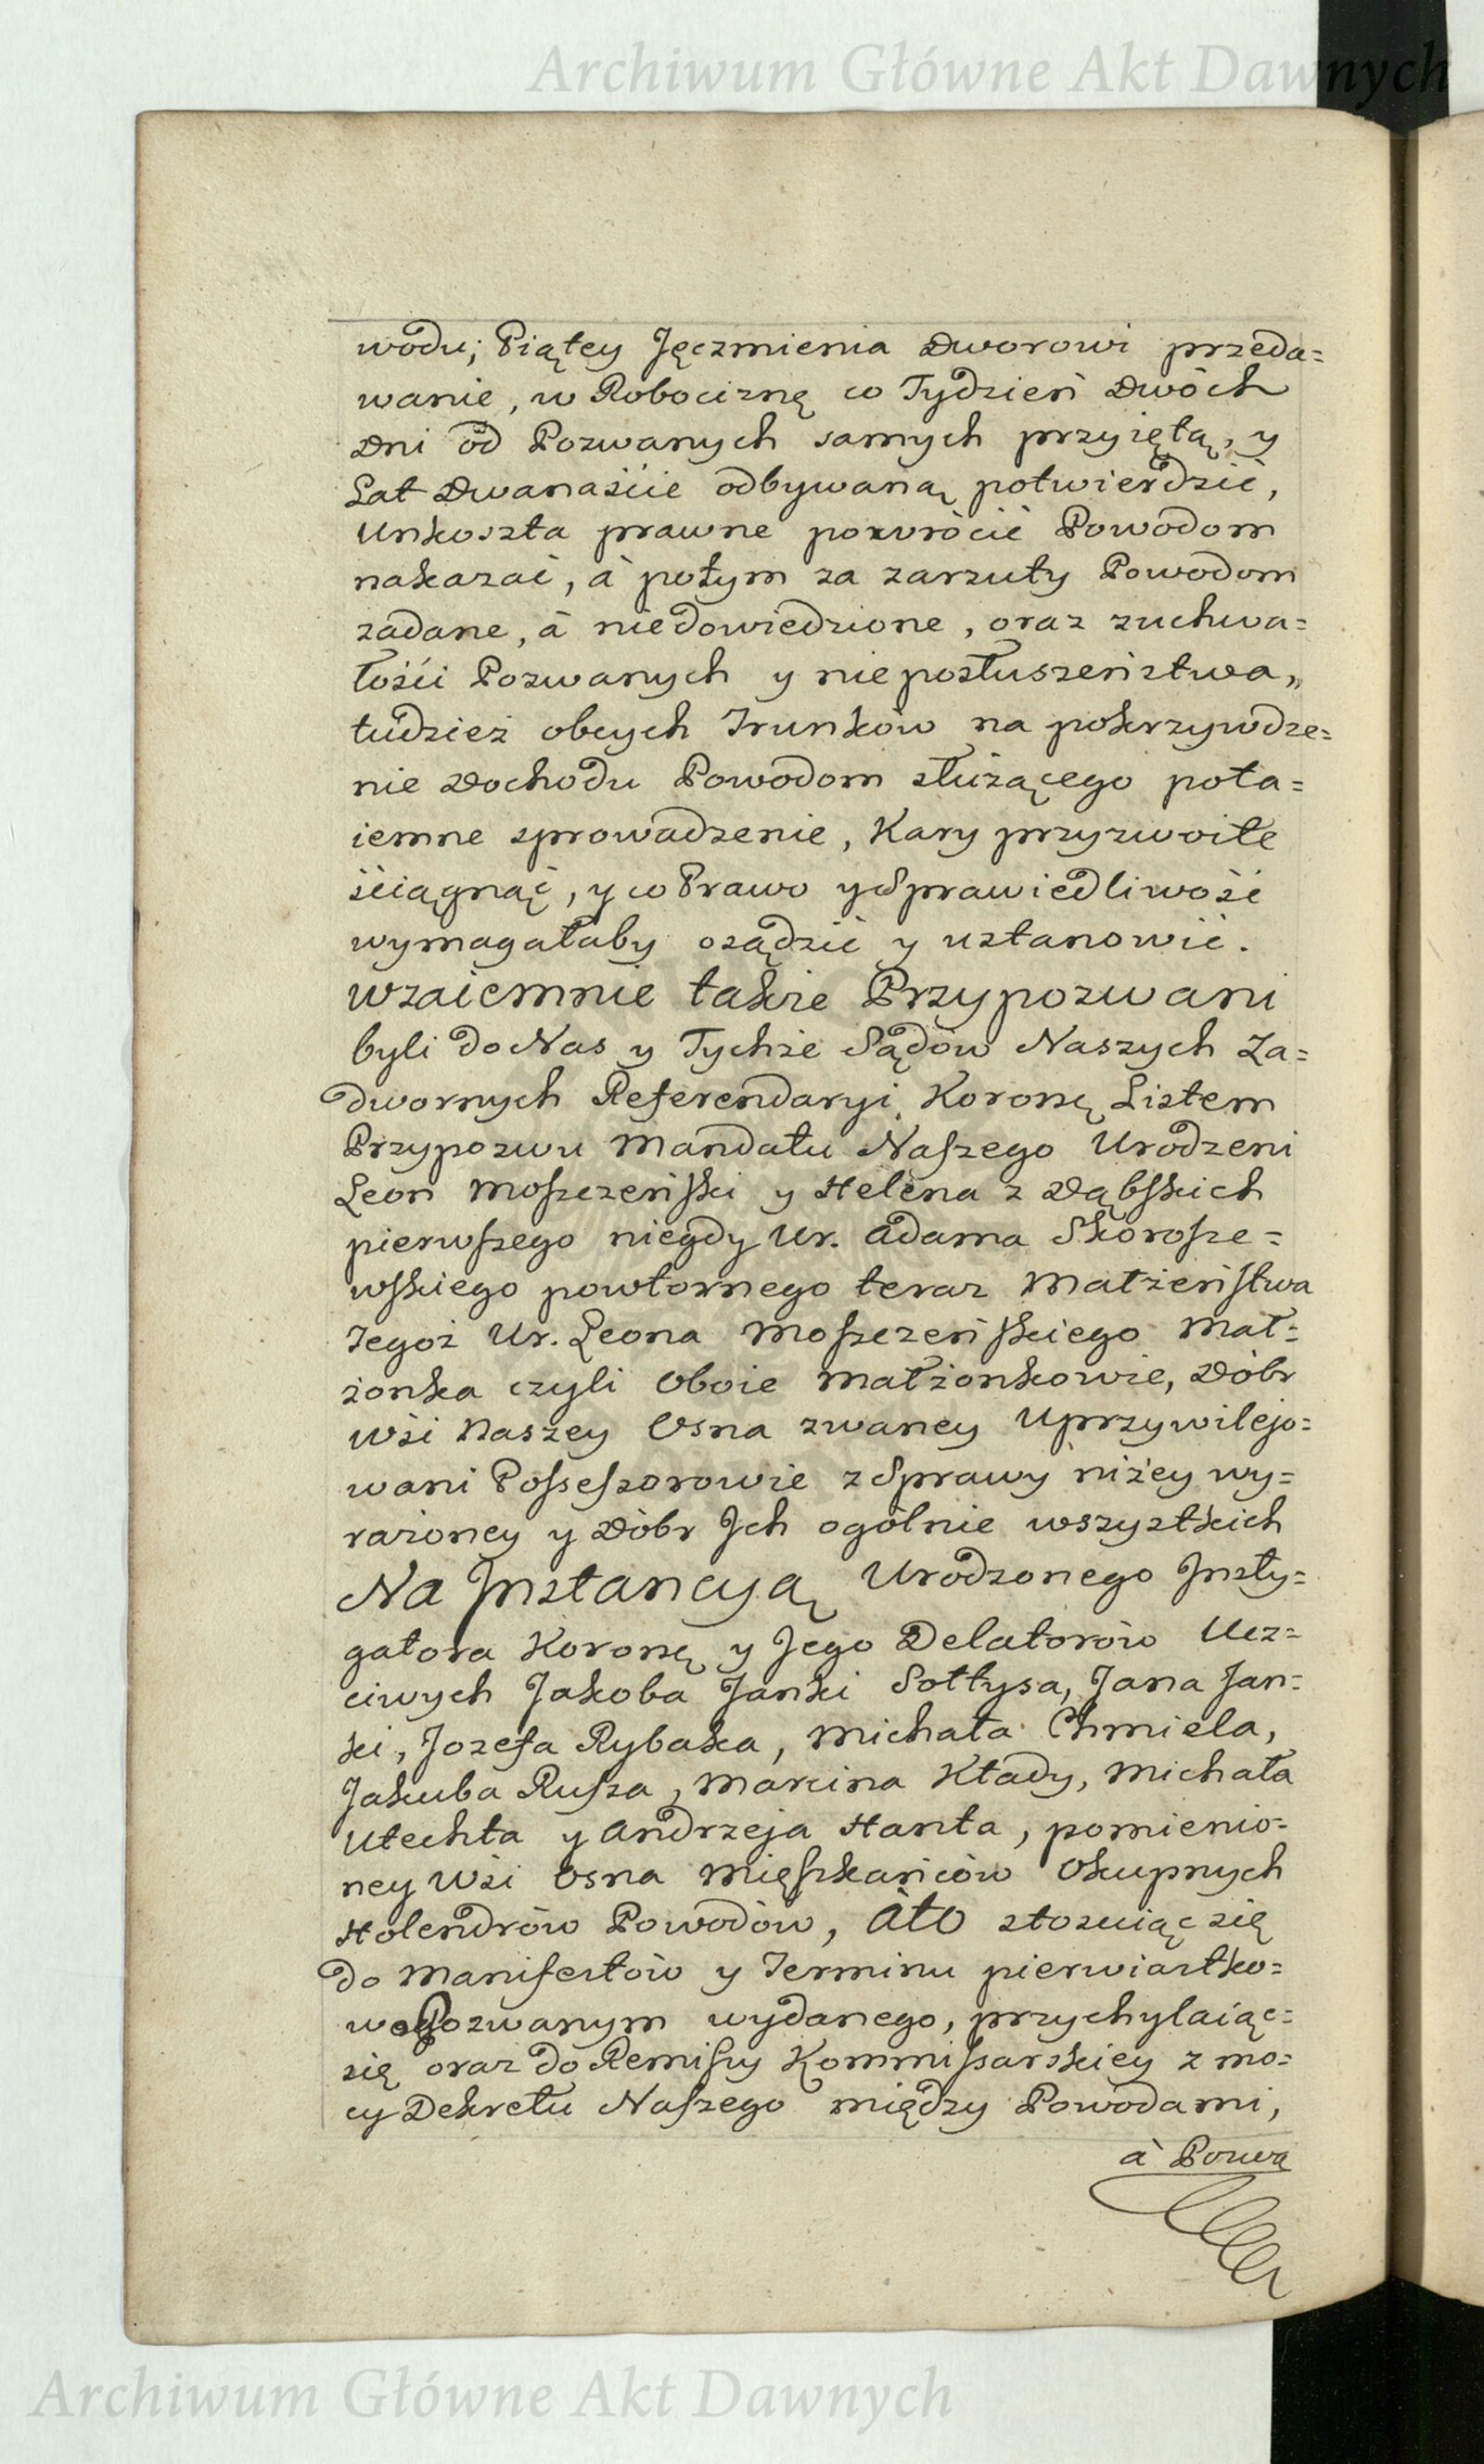 Archiwum Główne Akt Dawnych
wodu; Piątey Jęczmienia Dworowi przeda=
wanie, w Robociznę co Tydzień Dwóch
Dni od Pozwanych samych przyiętą, y
Lat Dwanaście odbywaną potwierdzić,
Unkoszta prawne powrócić Powodom
nakazać, à potym za zarzuty Powodom
zadane, à niedowiedzione, oraz zuchwa=
łości Pozwanych y nieposłuszeństwa,,
tudzież obcych Trunków na pokrzywdze=
nie Dochodu Powodom służącego pota=
iemne sprowadzenie, Kary przyzwoite
ściągnąć, y co Prawo y Sprawiedliwość
wymagałaby osądzić y ustanowić.
Wzaiemnie także Przypozwani
byli do Nas y Tychże Sądów Naszych Za=
dwornych Referendaryi Koronę Listem
Przypozwu Mandatu Naszego Urodzeni
Leon Moszczeński y Helena z Dąbskich
pierwszego niegdy Ur. Adama Skorosze=
wskiego powtornego teraz Małżeństwa
Tegoż Ur. Leona Moszczeńskiego Mał=
żonka czyli Oboie Małżonkowie, Dóbr
Wsi Naszey Osna zwaney Uprzywilejo=
wani Possessorowie z Sprawy niżey wy=
rażoney y Dóbr Jch ogólnie wszystkich
Na Jnstancyą Urodzonego Jnsty=
gatora Koronę y Jego Delatorów Ucz=
ciwych Jakoba Janki Sołtysa, Jana Jan=
ki, Jozefa Rybaka, Michała Chmiela,
Jakuba Rusza, Marcina Kłady, Michała
Utechta y Andrzeja Hanta, pomienio=
ney Wsi Osna Mięszkańców Okupnych
Holendrów Powodów, àto stosuiąc się
do Manifestów y Terminu pierwiastko=
wego Pozwanym wydanego, przychylaiąc=
się oraz do Remissy Kommissarskiey z mo=
cy Dekretu Naszego między Powodami,
à Pozwa
Archiwum Główne Akt Dawnych